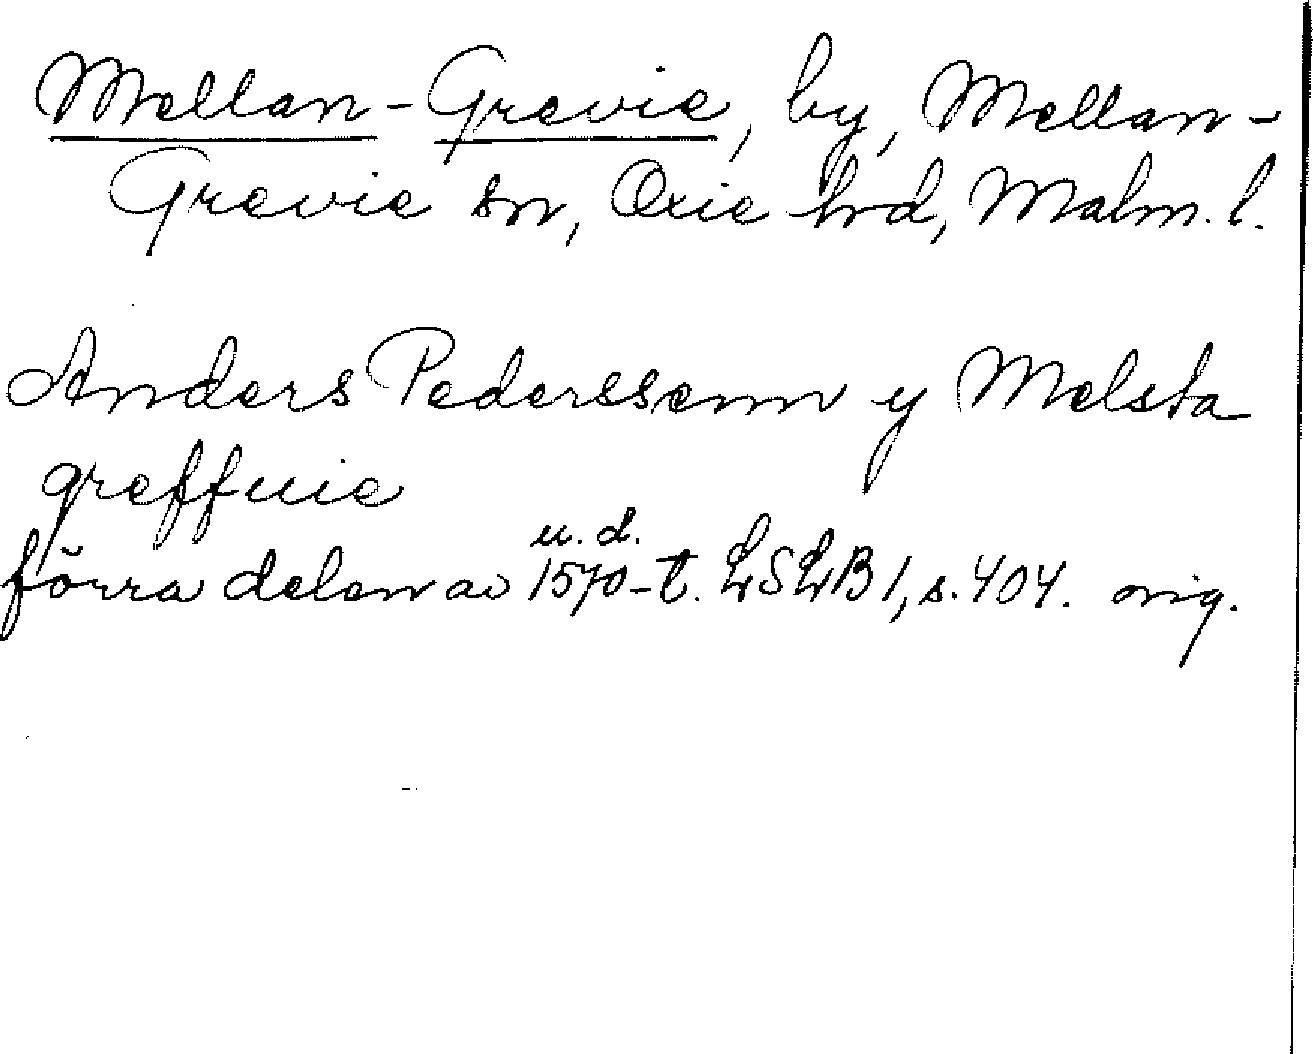 Mellan-Grevie, by, Mellan-
Grevie sn, Oxie hrd, Malm. l.
Anders Pederssenn y Melsta
greffuie
u. d.
förra delen av 1570-t. LSLB 1, s. 404. orig.